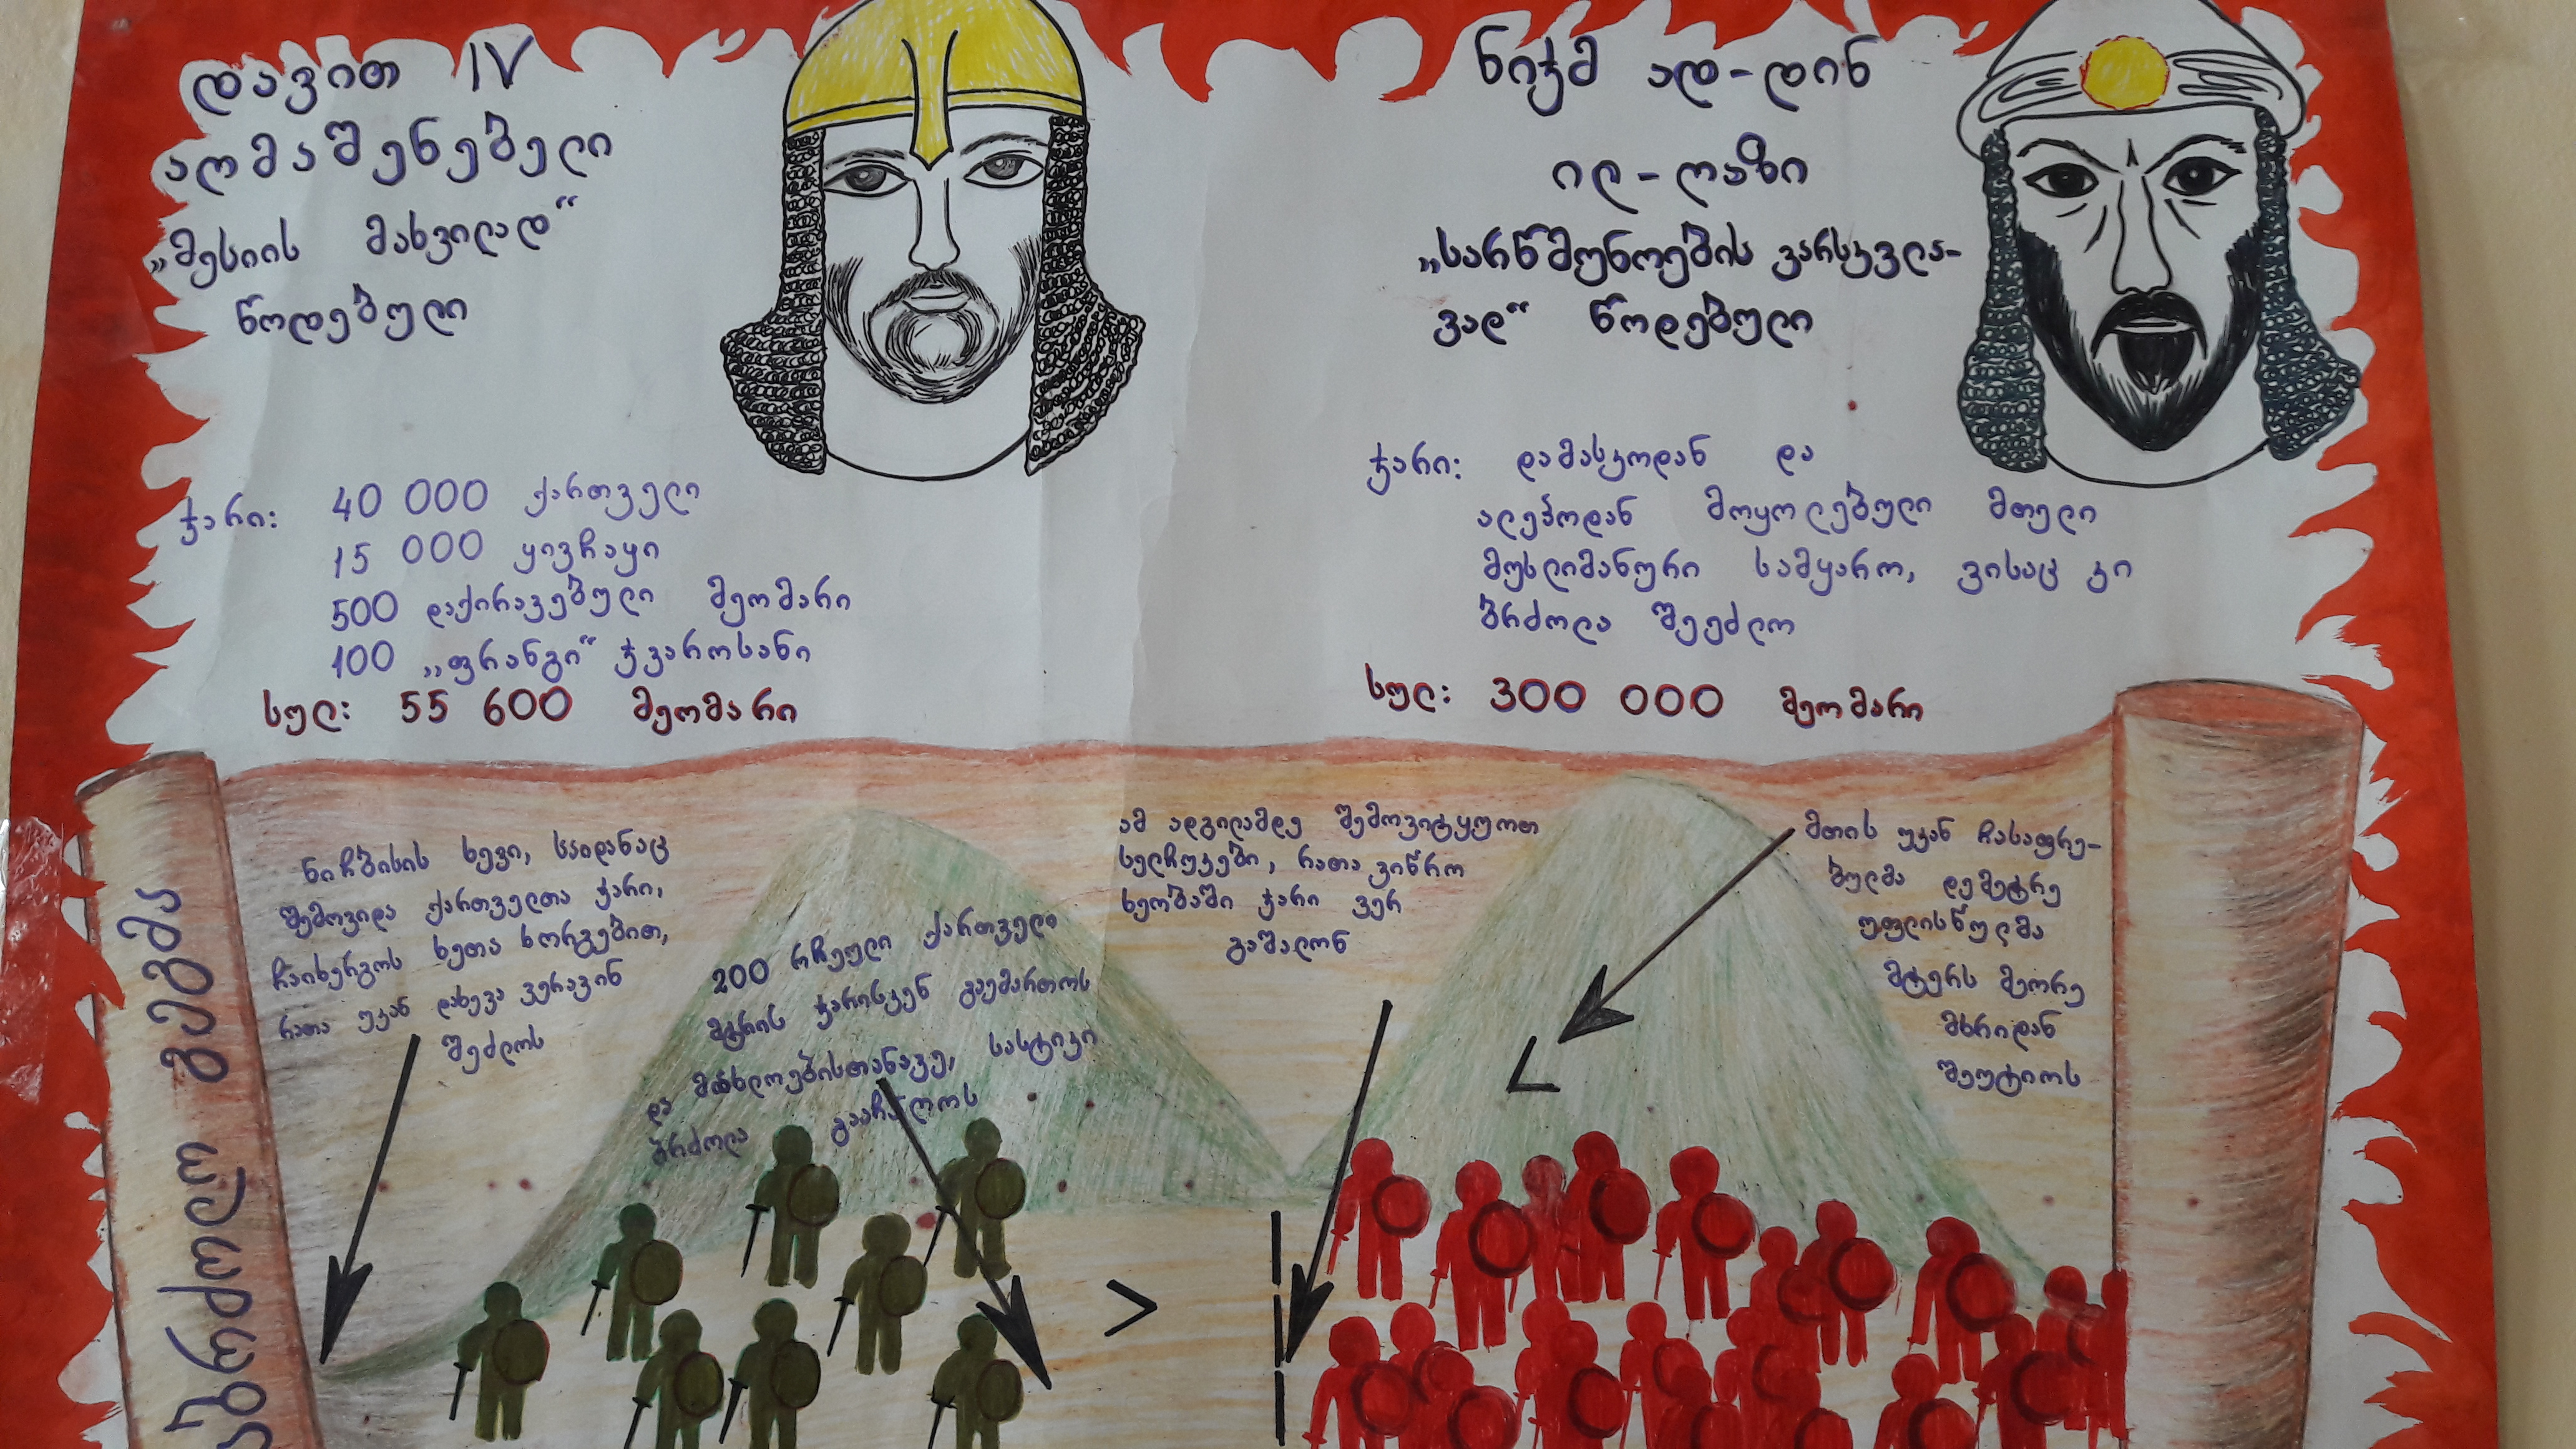 დავით IV
აღმაშენებელი
„მესიის მახვილად“
წოდებული
ჯარი: 40 000 ქართველი
15 000 ყივჩაყი
500 დაქირავებული მეომარი
100 „ფრანგი“ ჯვაროსანი
სულ: 55 600 მეომარი
ნიჯმ ად-დინ
ილ-ღაზი
„სარწმუნოების ვარსკვლა-
ვად“ წოდებული
ჯარი: დამასკოდან და
ალეპოდან მოყოლებული მთელი
მუსლიმანური სამყარო, ვისაც კი
ბრძოლა შეეძლო
სულ: 300 000 მეომარი
საბრძოლო გეგმა
ნიჩბისის ხევი, საიდანაც
შემოვიდა ქართველთა ჯარი,
ჩაიხერგოს ხეთა ხორგებით,
რათა უკან დახევა ვერავინ
შეძლოს
200 რჩეული ქართველი
მტრის ჯარისკენ გაემართოს
და მიახლოებისთანავე, სასტიკი
ბრძოლა გააჩაღოს
ამ ადგილამდე შემოვიტყუოთ
სელჩუკები, რათა ვიწრო
ხეობაში ჯარი ვერ
გაშალონ
მთის უკან ჩასაფრე-
ბულმა დემეტრე
უფლისწულმა
მტერს მეორე
მხრიდან
შეუტიოს